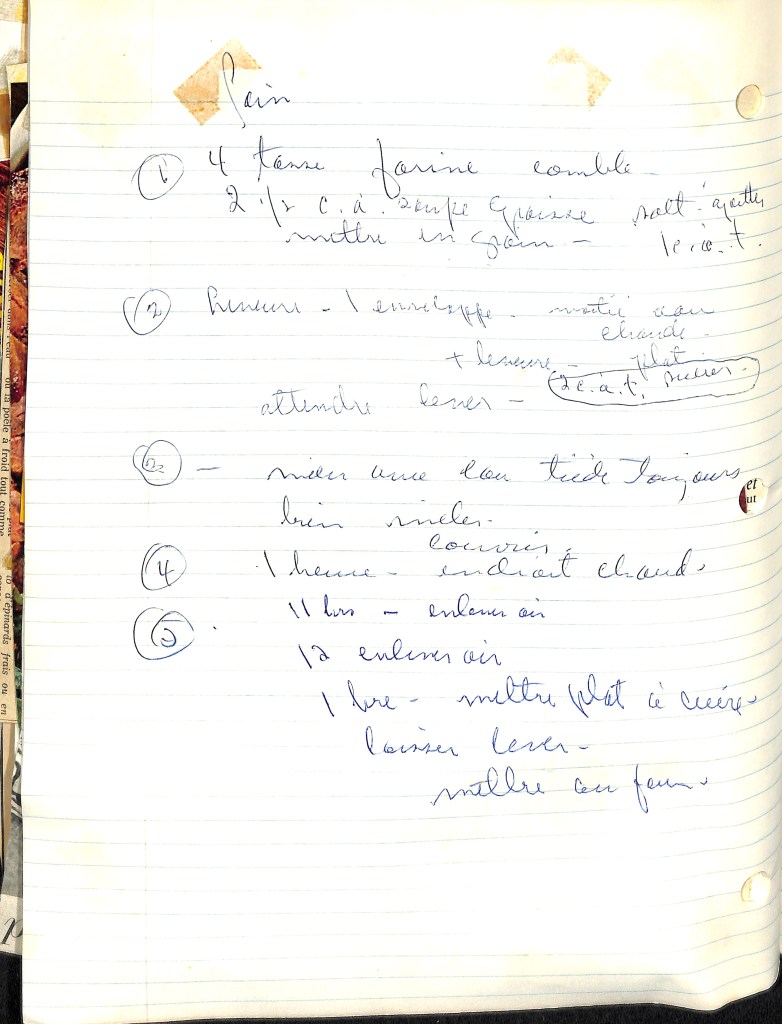 Pain
① 4 tasse farine comble -
2 1/2 c. à. soupe graisse salt - ajoutter
mettre en grain - 1 c. a. t.
② leveure - 1 enveloppe - eau
chaude -
+ leveure - plat -
2 c. a. t. sucrer -
attendre lever -
- eau tiède Toujours
bien mêler -
couvrir.
④ 1 heure - endroit chaud -
⑤ 11 hrs - enlever air
12 enlever air
1 hre - mettre plat à cuire -
laisser lever -
mettre au four -
et
ut
ou la poêle à froid tout comme
d'épinards frais ou en